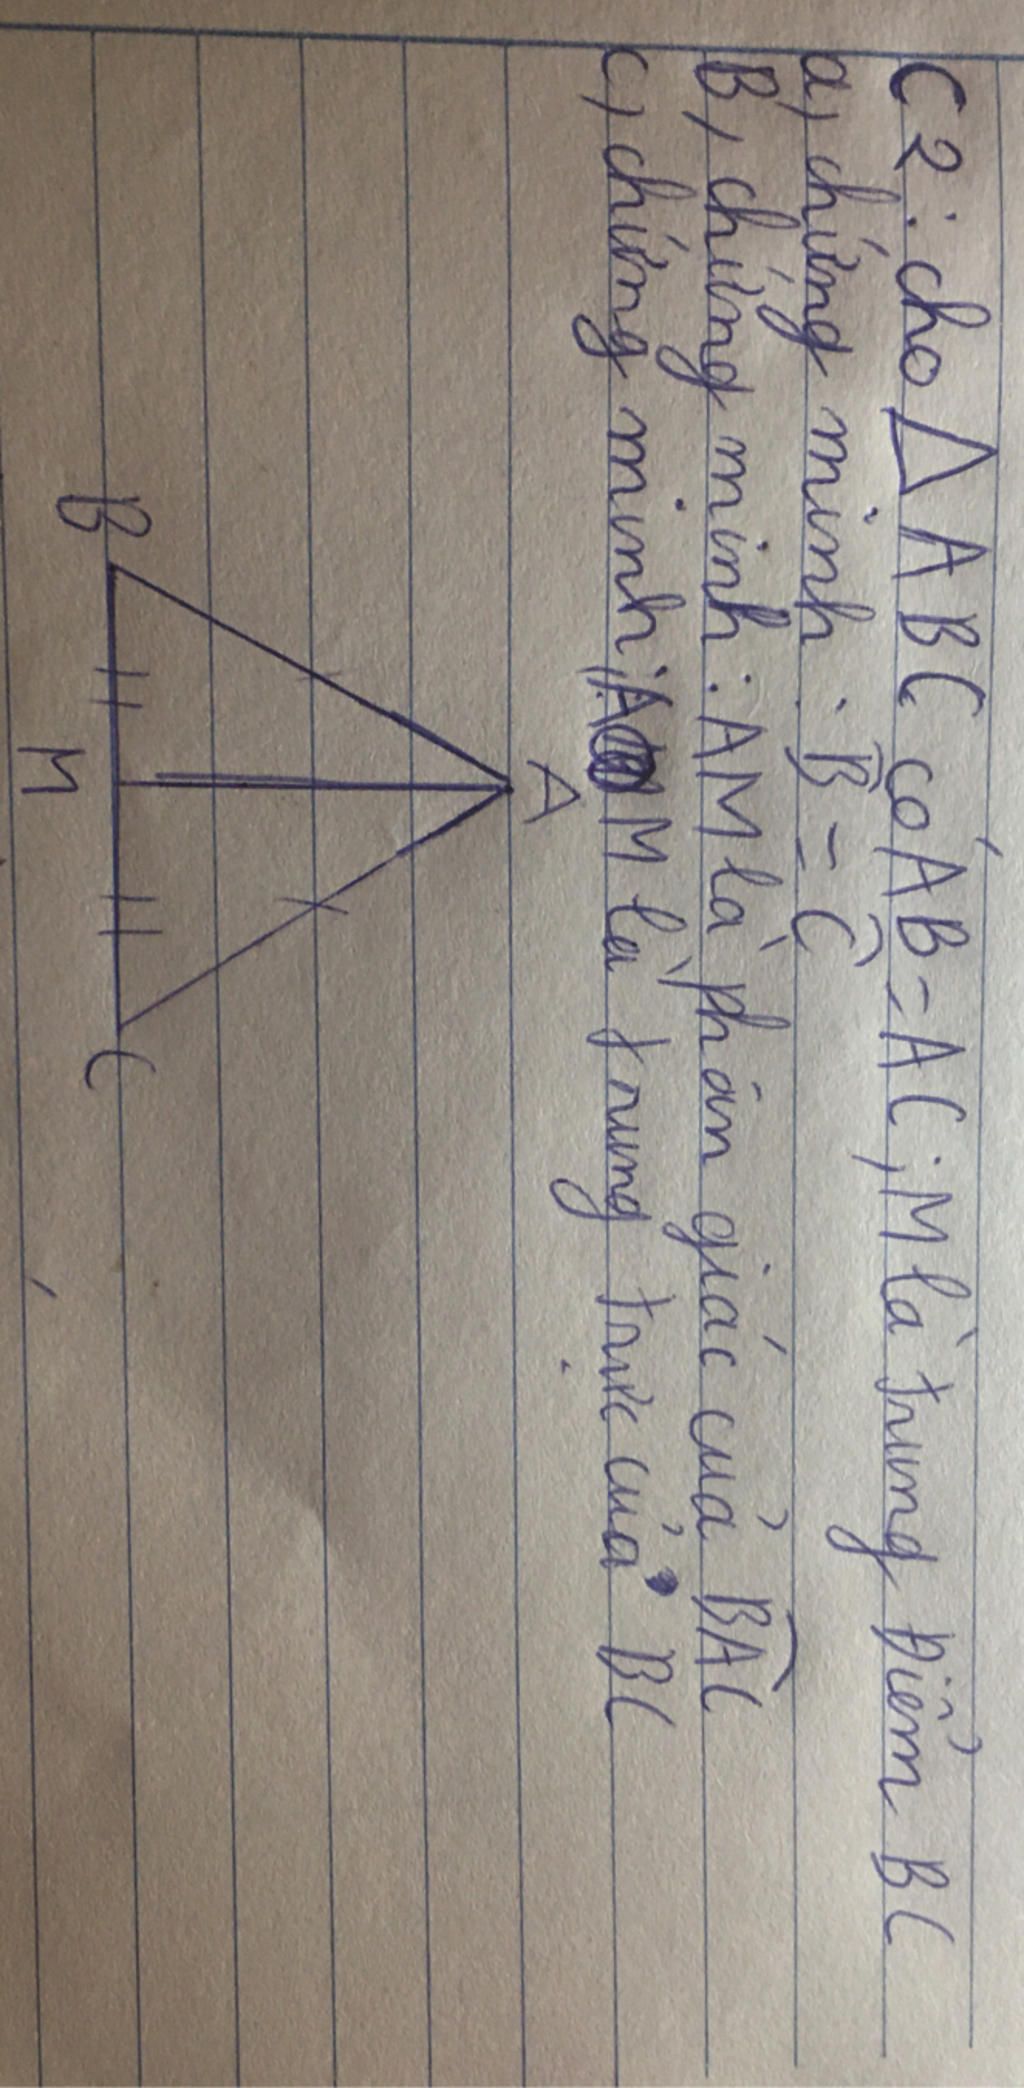 C2: cho △ABC có AB = AC; M là trung điểm BC
a, chứng minh: B̂ = Ĉ
B, chứng minh: AM là phân giác của BAC
c, chứng minh: AM là trung trực của BC
A
B
M
C